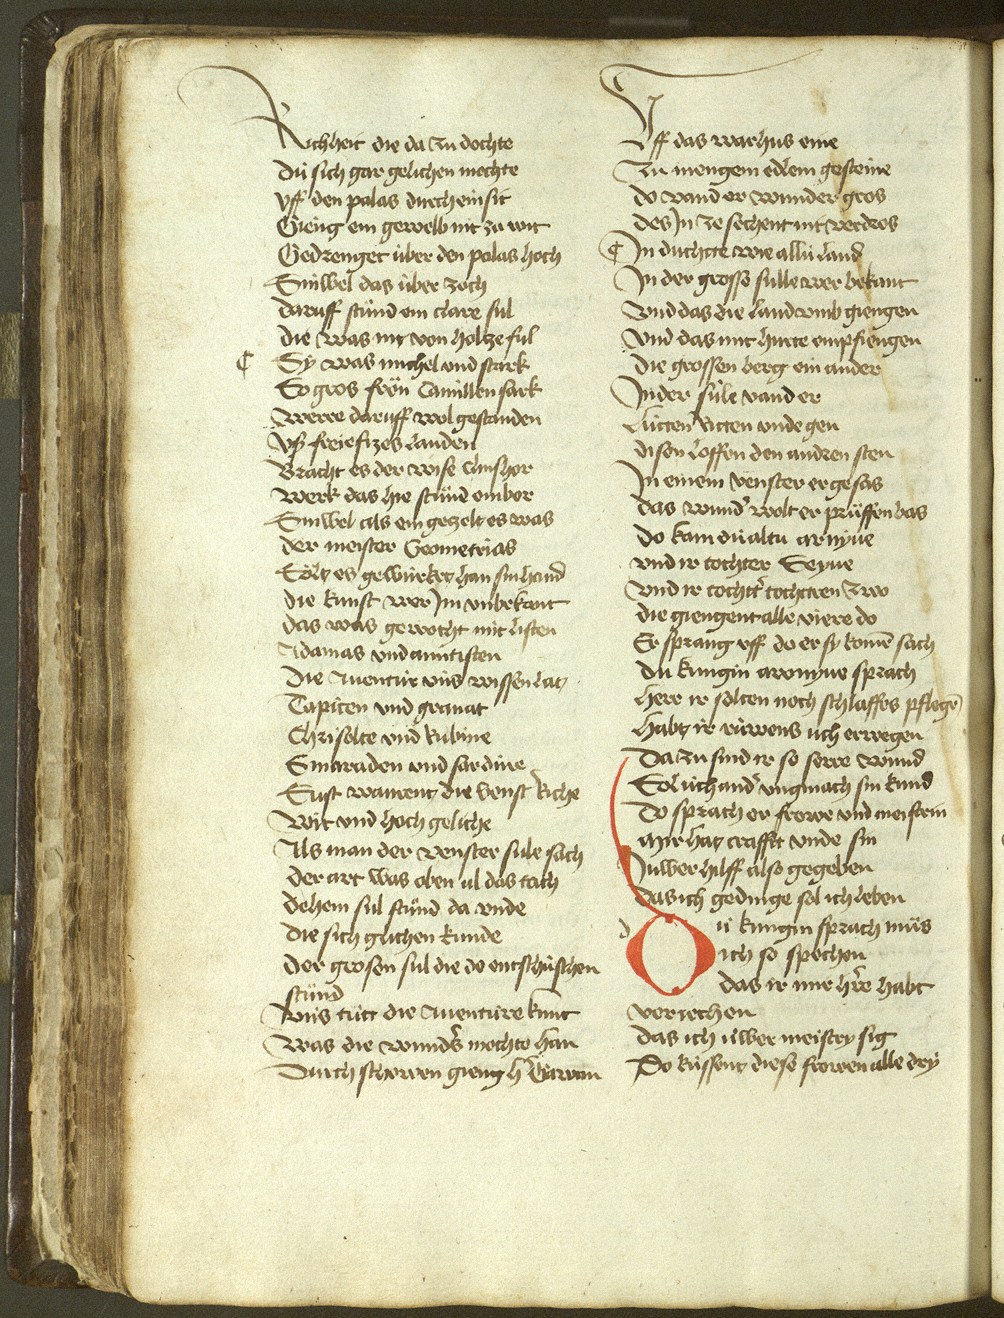 Richheit die da zu dochte
Dú sich gar gelichen mochte
Vff den palas durch ein sit
Gieng ein gewelb nit zu wit
Gedrenget über den palas hoch
Sinwel das über zoch
Daruff stůnd ein clare sul
Die was nit von holtze ful
Sy was michel und stark
So gros frön Camillen sark
Werre daruff wol gestanden
Vß freiefizes landen
Bracht es der wise Clinshor
Werk das hie stůnd embor
Sinwel als ein gezelt es was
Der meister Geometrias
Sölt es gewürket han sin hand
Die kunst wer Im unbekant
Das was geworcht mit listen
Adamas und amitisten
Die Auentúr uns wissen lat
Tapiten und granat
Chrisolte und Rubine
Smaraden und sardine
Sust warent die venster riche
Wit und hoch geliche
Als man der venster sule sach
Der art was oben al das tach
Dehein sul stůnd da unde
Die sich glichen kunde
Der grosen sul die do entschúschen
stůnd
Vns tůtt die Auenture kunt
Was die wunders mochte han
Durch schowen gieng her Gawan
Vff das warhus eine
Zu mengem edlem gesteine
Do vand er wunder gros
Des In ze sechent nit verdros
In duchtte wie allú land
In der grosse sulle wer bekant
Vnd das die land umb giengen
Vnd das mit hurte empfiengen
Die grossen berg ein ander
In der sůle vand er
Lútten ritten unde gen
Disen loffen den andren sten
In einem venster er gesas
Das wunder wolt er prúffen bas
Do kam dú altú arnyue
Vnd ir tochter Seyue
Vnd ir tochter tochteren zwo
Die giengent alle viere do
Er sprang uff do er sy komen sach
Dú kungin aronyue sprach
Herr ir solten noch schlaffes pflegen
Habt ir růwens úch erwegen
Da zu sind ir so serre wund
Sol úch ander ungmach sin kund
Do sprach er frowe und meisterin
Mir hat crafft unde sin
Iuwer hilff also gegeben
Das ich gedinge sol ich leben
Dú kungin sprach můs
ich so spechen
Das ir mir herre habt
veriechen
Das ich úwer meistry sig
Do kússent diese frowen alle dry